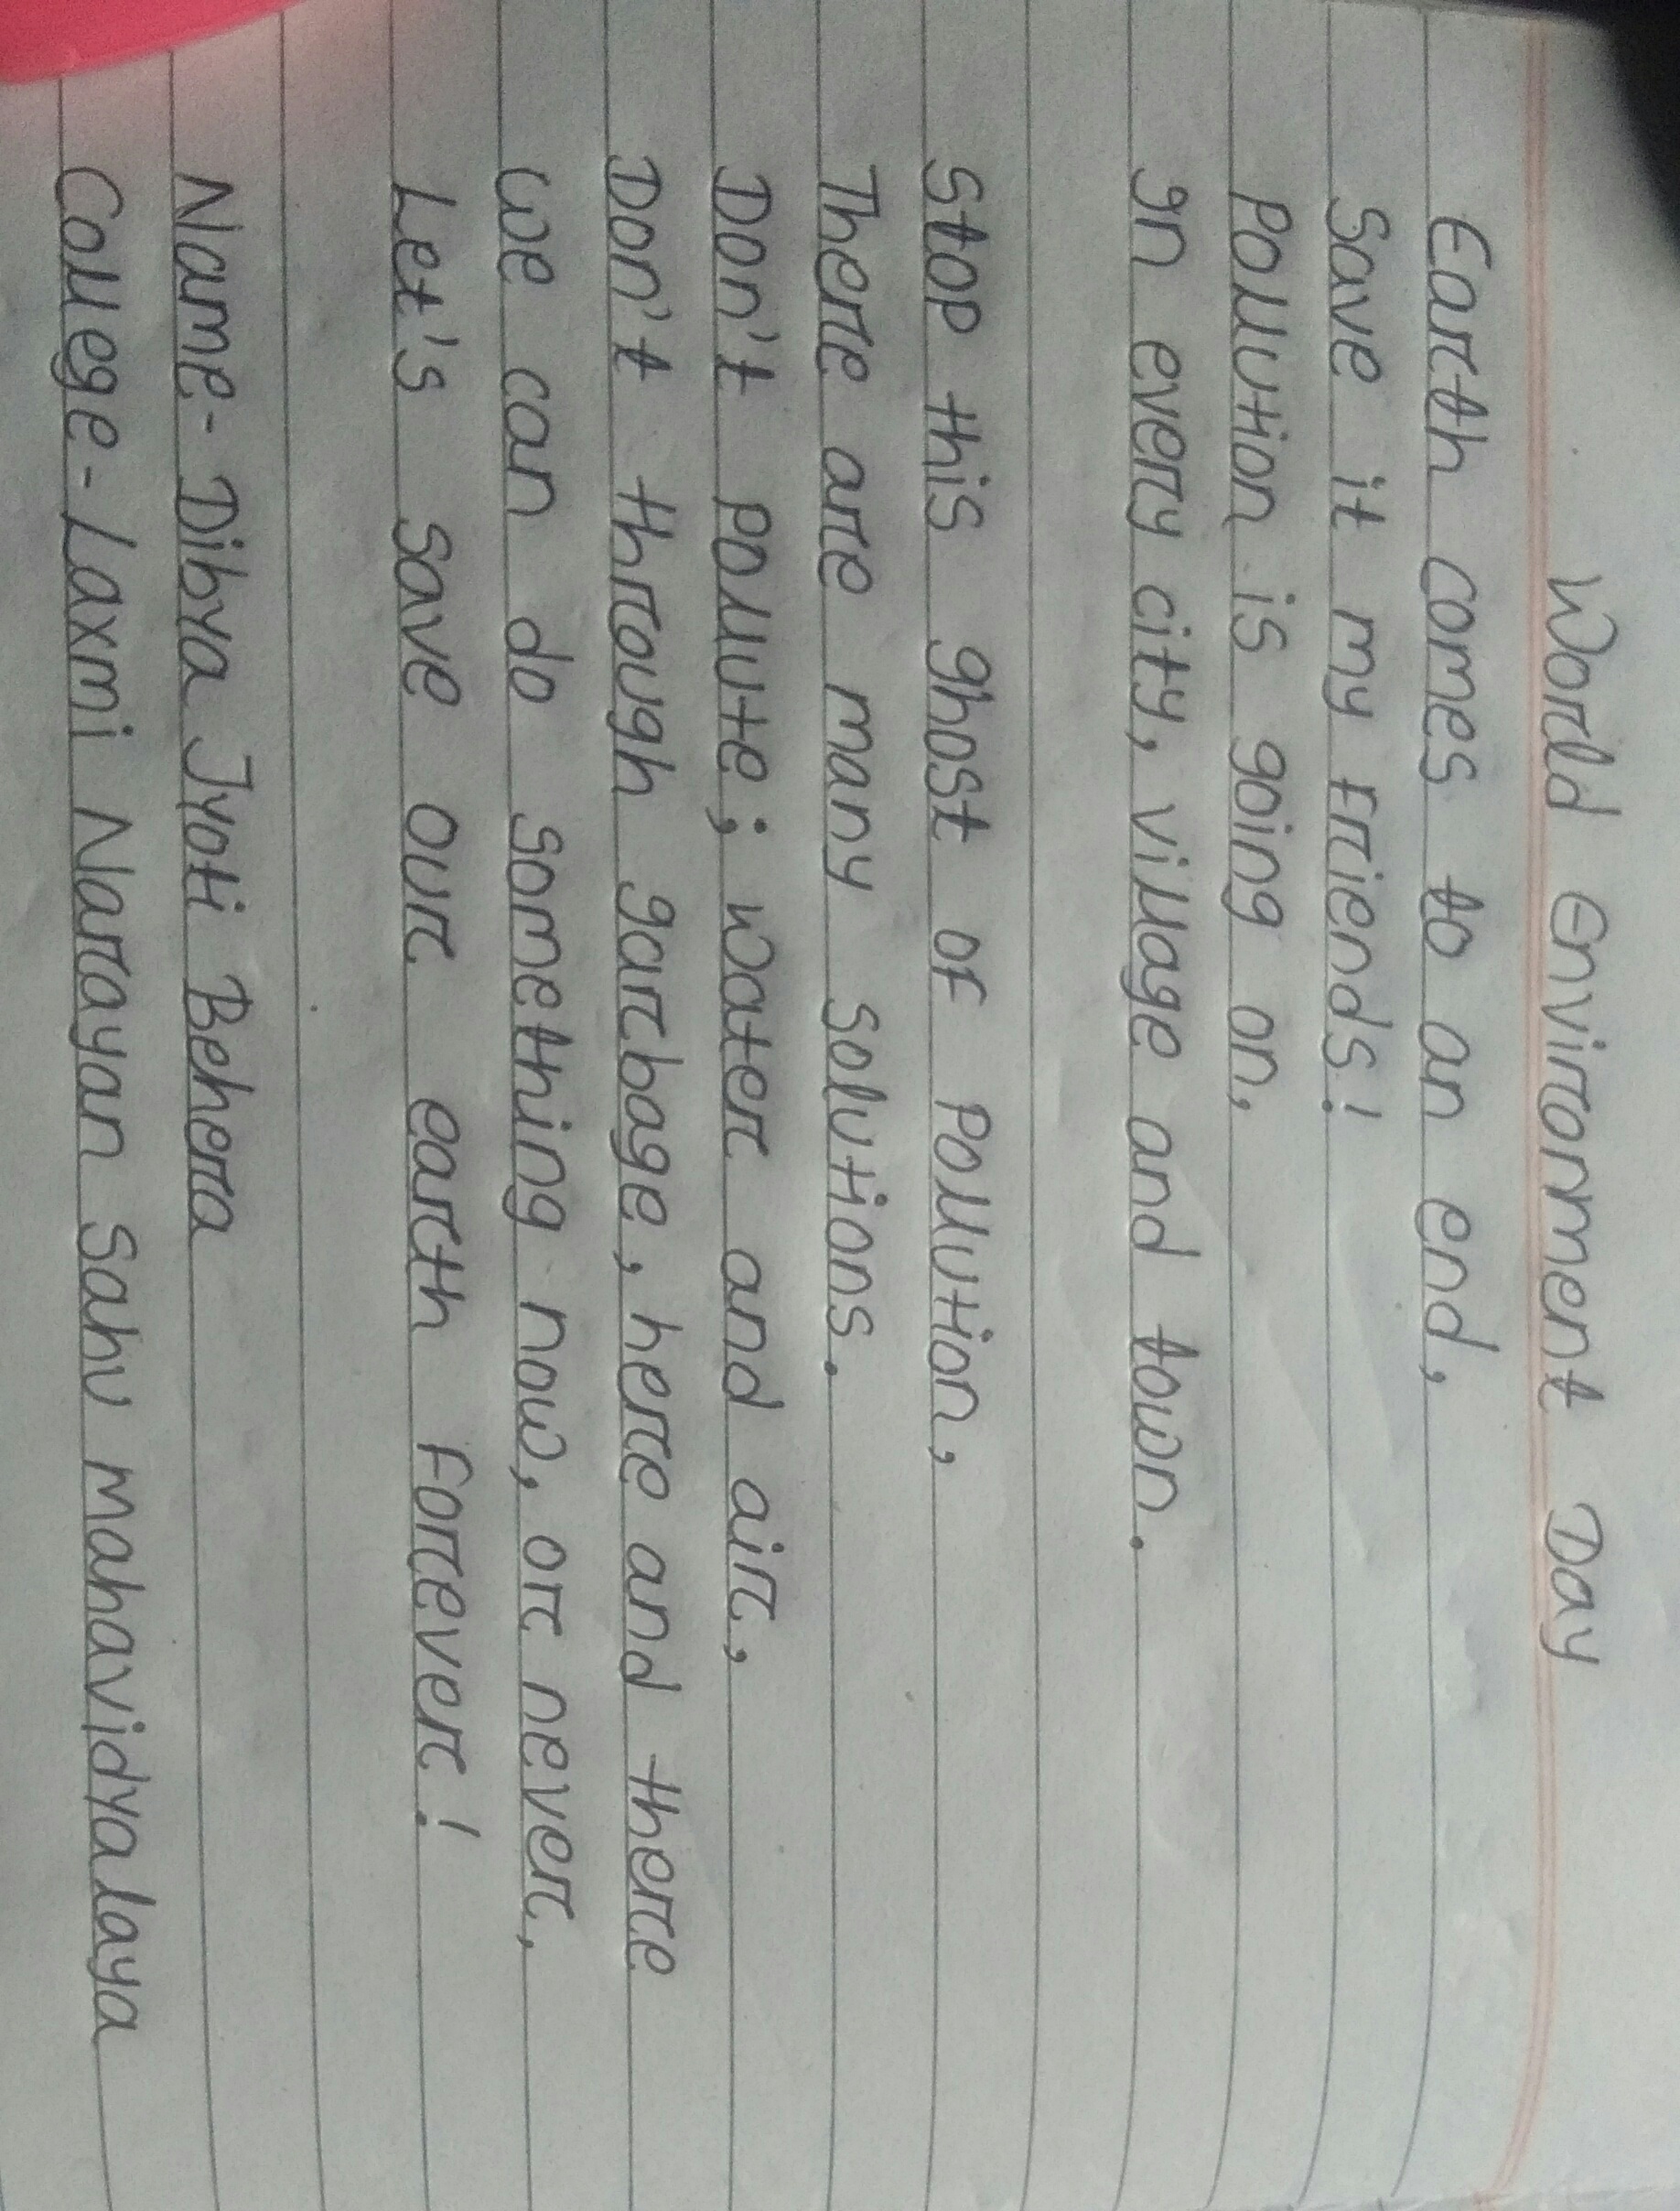 World Environment Day
Earth comes to an end,
Save it my friends!
Pollution is going on,
In every city, village and town.
Stop this ghost of pollution,
There are many solutions.
Don't pollute; water and air,
Don't through garbage, here and there
We can do something now, or never,
Let's save our earth forever!
Name- Dibya Jyoti Behera
College- Laxmi Narayan Sahu mahavidyalaya